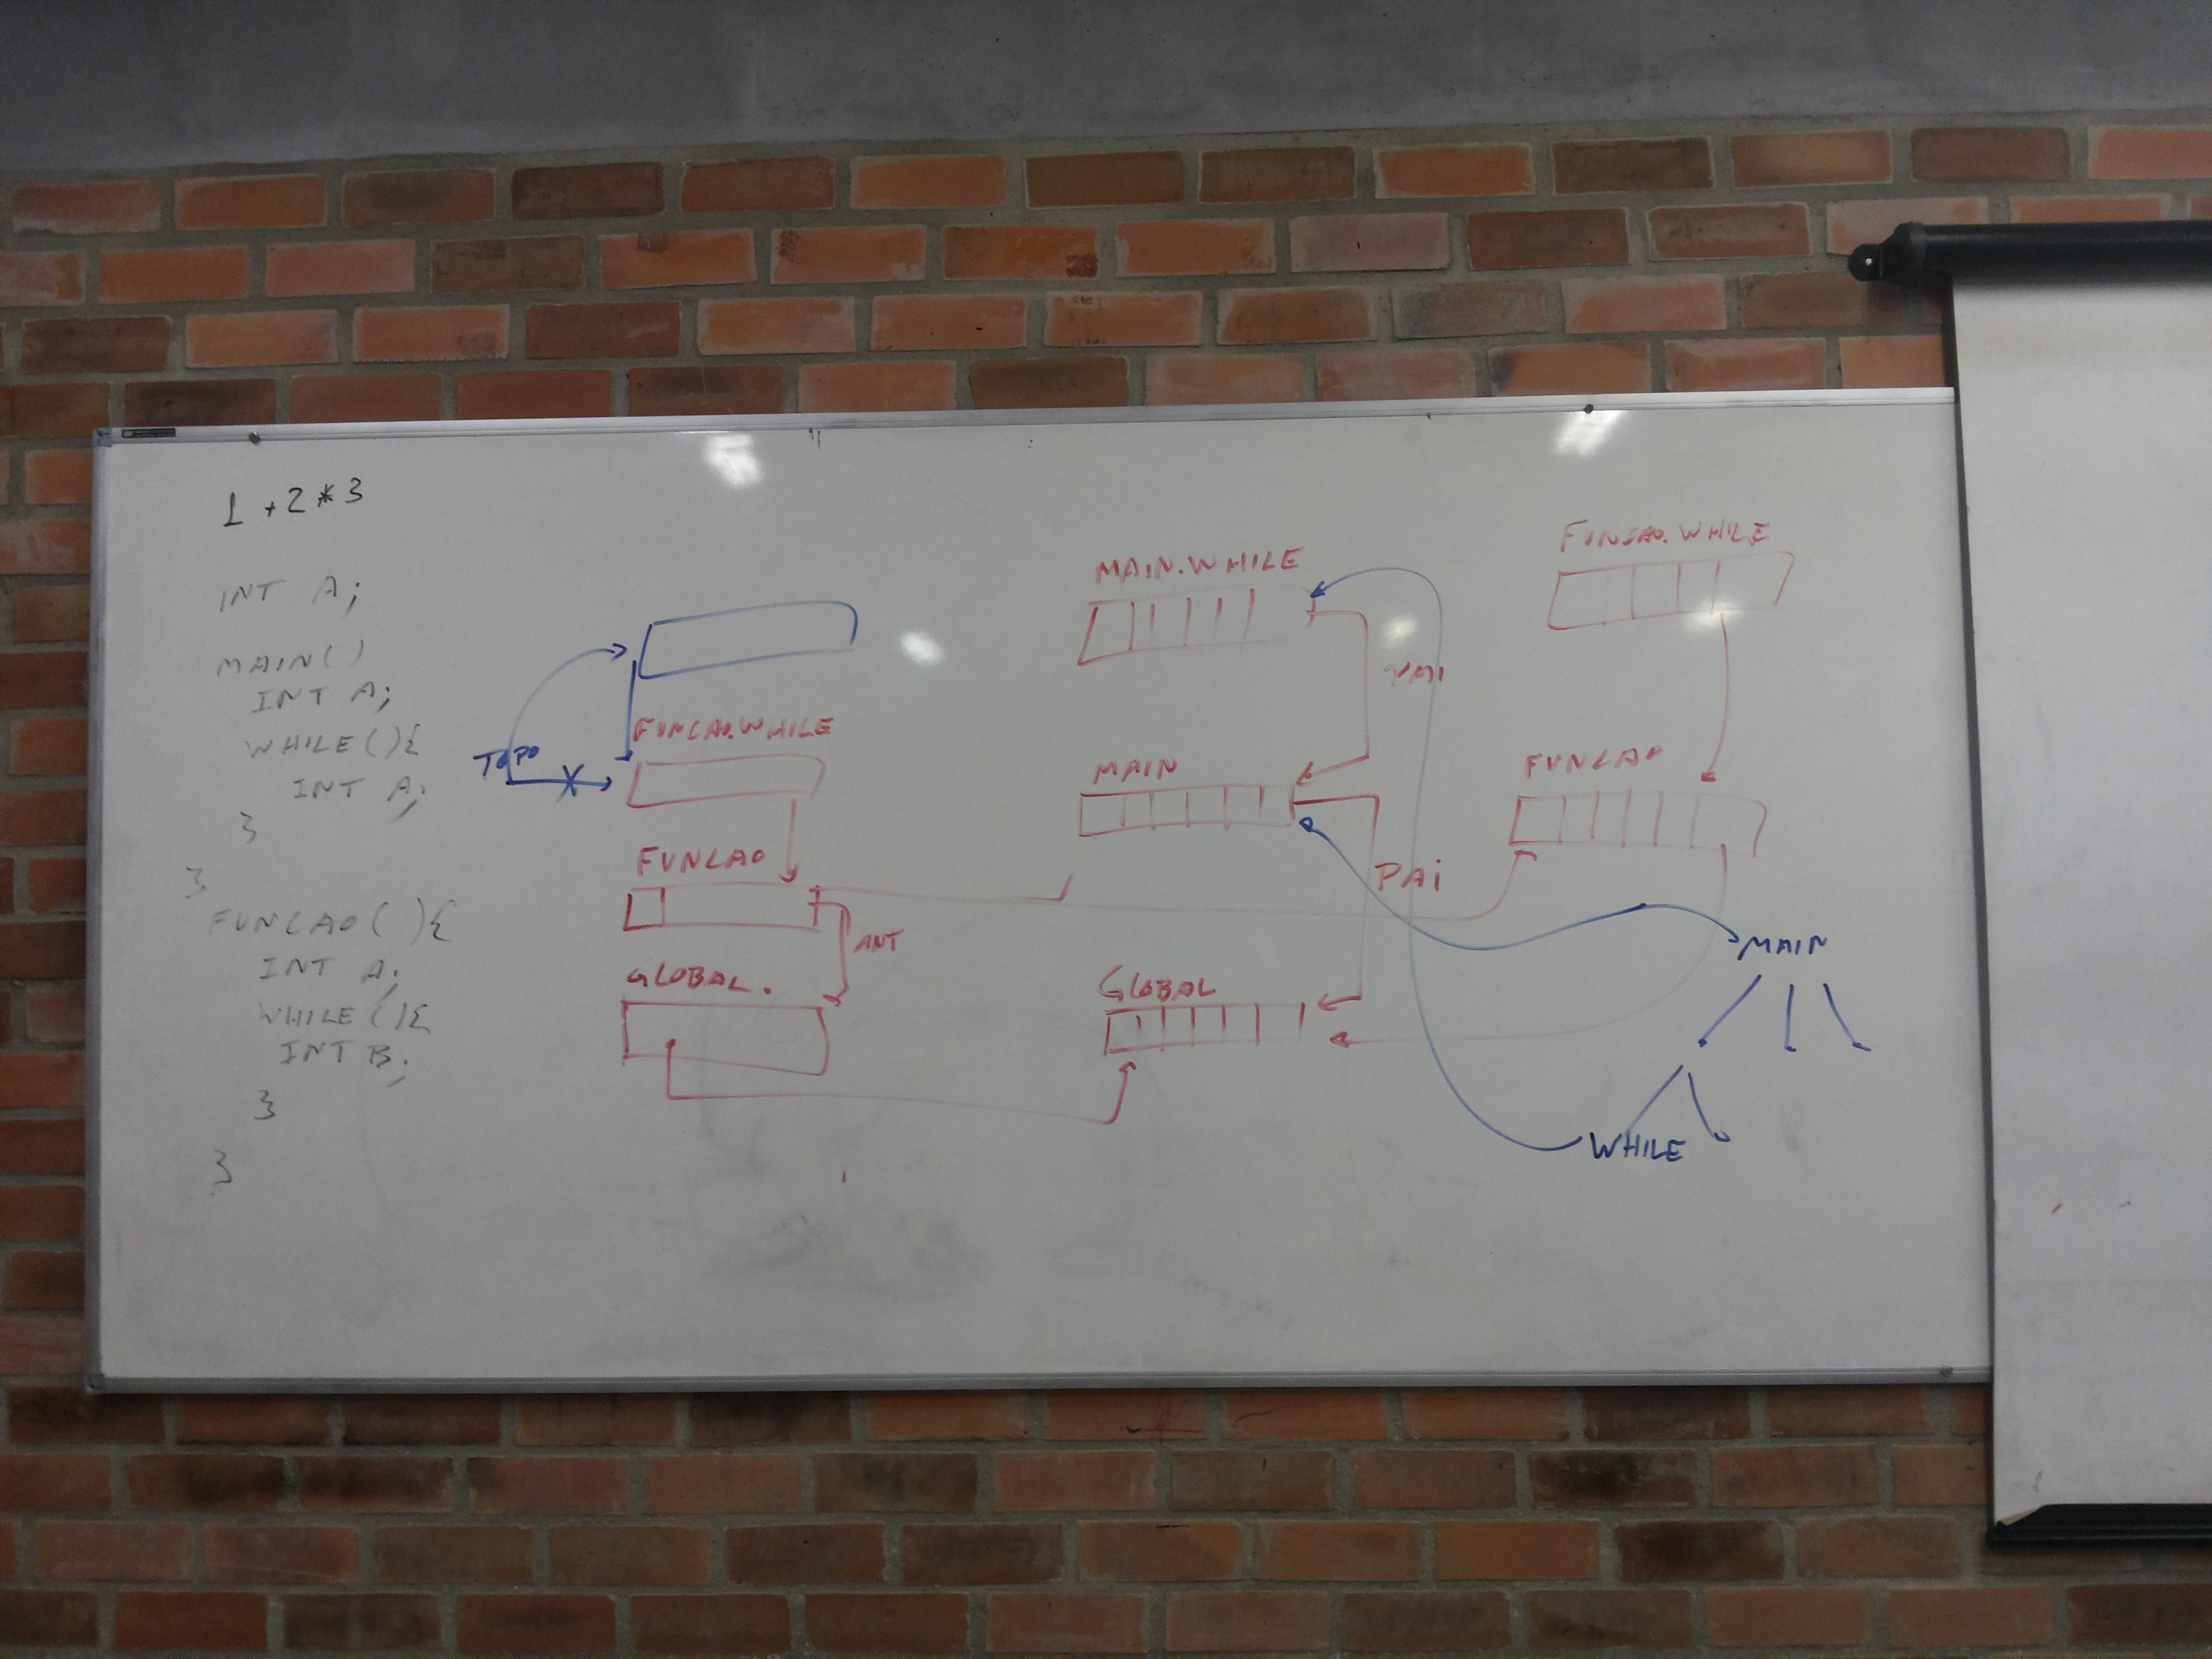 1 + 2 * 3
INT A;
MAIN()
INT A;
WHILE(){
INT A;
}
}
FUNCAO(){
INT A;
WHILE(){
INT B;
}
}
TOPO
FUNCAO.WHILE
FUNCAO
ANT
GLOBAL.
MAIN.WHILE
PAI
MAIN
PAi
GLOBAL
FUNCAO.WHILE
FUNCAO
MAIN
WHILE